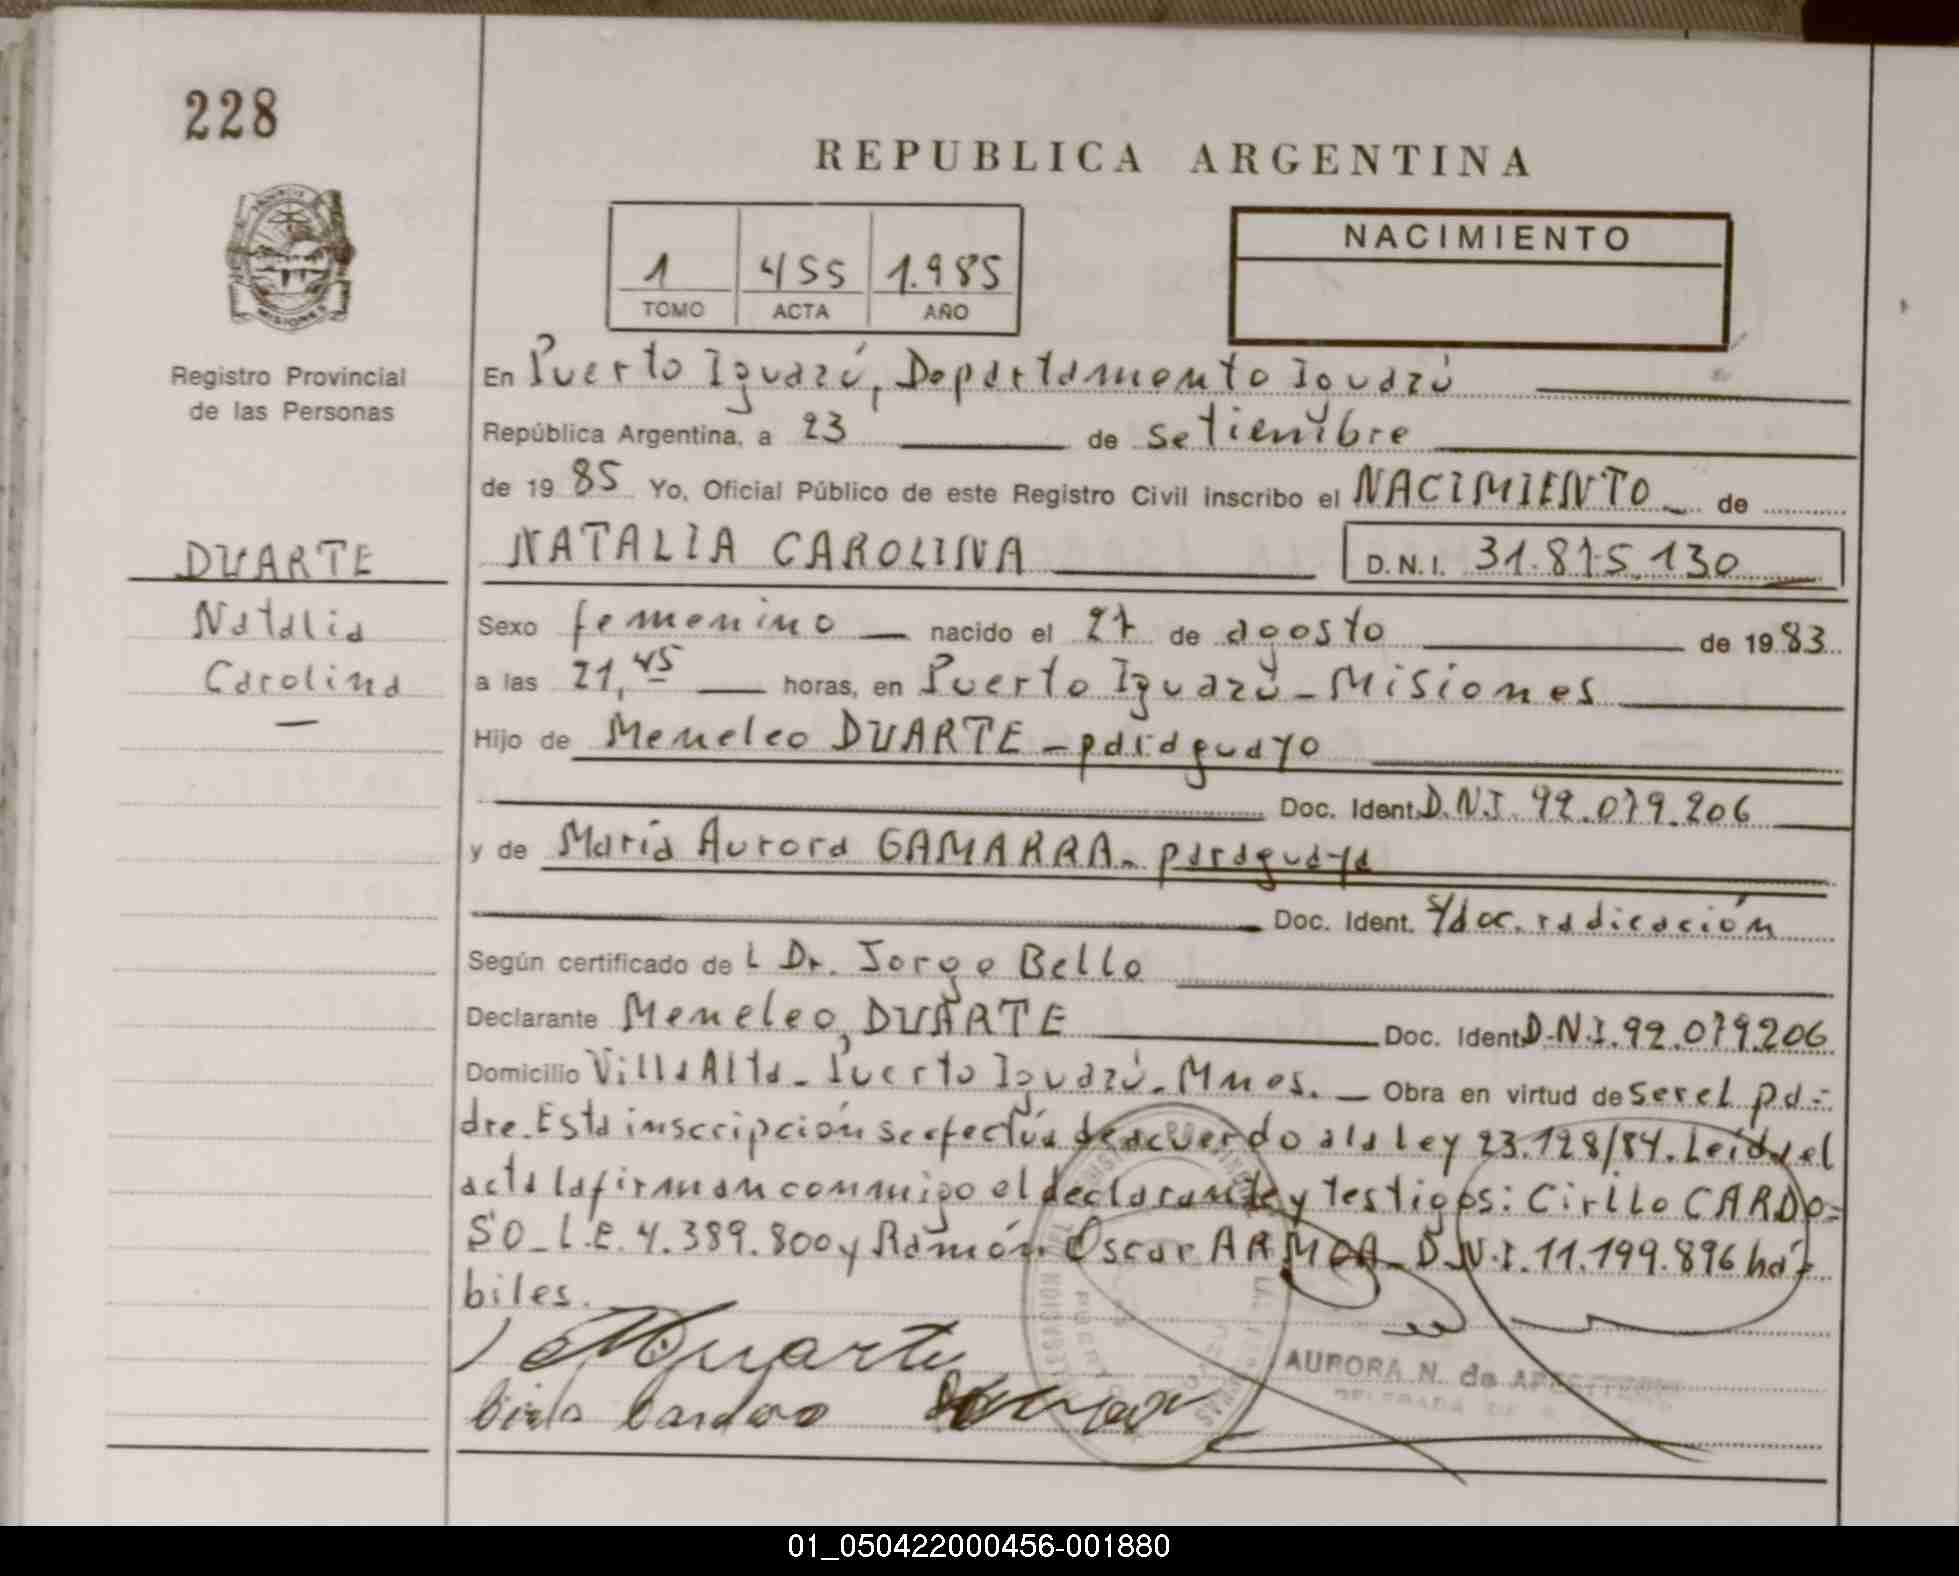 228
REPUBLICA ARGENTINA
NACIMIENTO
1 455 1.985
TOMO ACTA AÑO
MISIONES
Registro Provincial
de las Personas
En Puerto Iguazú, Departamento Iguazú
República Argentina, a 23 de setiembre
de 19 85 Yo, Oficial Público de este Registro Civil inscribo el NACIMIENTO de
DUARTE
Natalia
Carolina
NATALIA CAROLINA D.N.I. 31.815.130
Sexo femenino nacido el 27 de agosto de 19 83
a las 21,45 horas, en Puerto Iguazú - Misiones
Hijo de Meneleo DUARTE - paraguayo
Doc. Ident. D.N.I. 92.079.206
y de María Aurora GAMARRA - paraguaya
Doc. Ident. s/doc. radicación
Según certificado de L Dr. Jorge Bello
Declarante Meneleo DUARTE Doc. Ident. D.N.I. 92.079.206
Domicilio Villa Alta - Puerto Iguazú - Mnes. - Obra en virtud de ser el pa=
dre. Esta inscripción se efectúa de acuerdo a la ley 23.128/84. Leída el
acta la firman conmigo el declarante y testigos: Cirilo CARDO=
SO - L.E. 4.389.800 y Ramón Oscar ARMOA - D.N.I. 11.199.896 há=
biles.
Duarte
Cirilo Cardozo
AURORA N. de
01_050422000456-001880